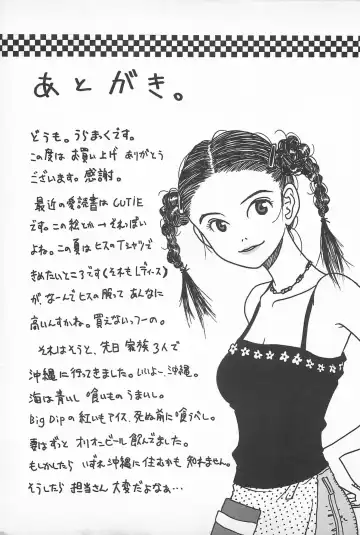 あとがき。
どうも。うらまっくです。
この度は お買い上げ ありがとう
ございます。感謝。
最近の愛読書は CUTiE
です。この絵とか→それっぽい
よね。この夏は ヒスのTシャツで
きめたいところです(それもLディース)
が、なーんでヒスの服って あんなに
高いんすかね。買えないっつーの。
それはそうと、先日 家族3人で
沖縄に行ってきました。いいよー、沖縄。
海は青いし 喰いものうまいし。
Big Dipの紅いもアイス、死ぬ前に喰うべし。
妻はずっと オリオンビール 飲んでました。
もしかしたら いずれ沖縄に住むかも 知れません。
そうしたら 担当さん 大変だよなぁ…